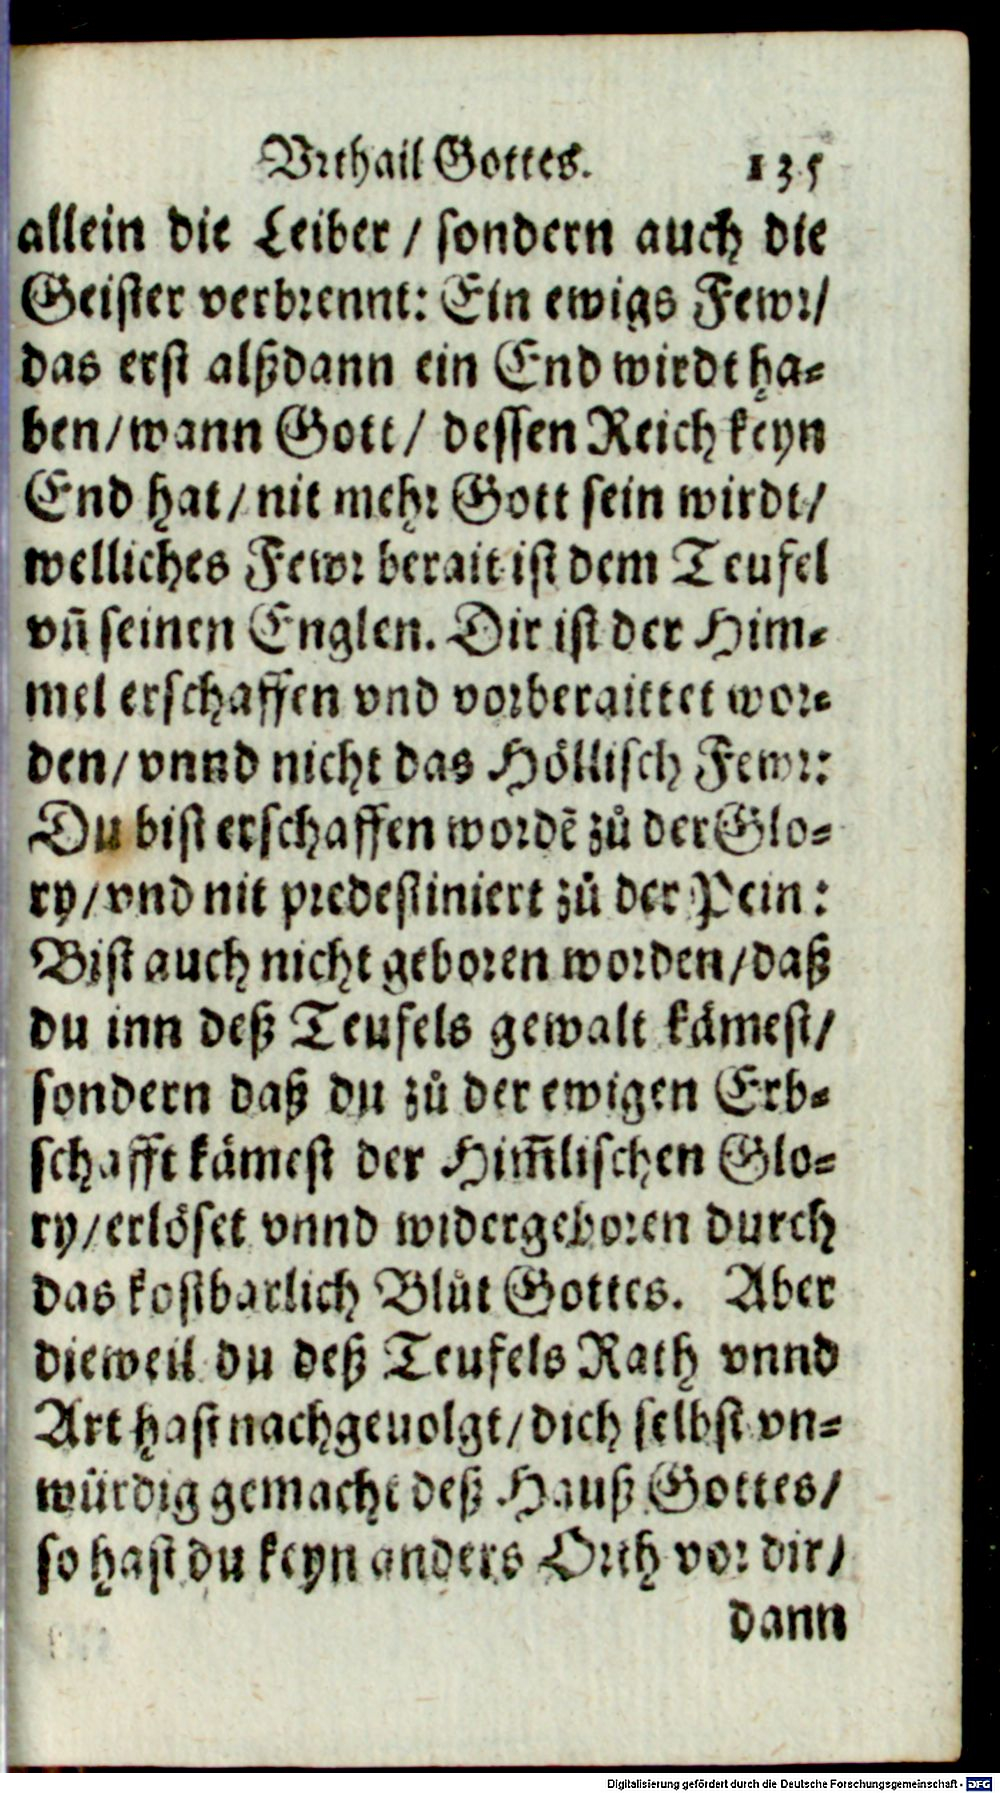 Vrthail Gottes. 135
allein die Leiber / sondern auch die
Geister verbrennt: Ein ewigs Fewr/
das erst alßdann ein End wirdt ha-
ben/wann Gott/ dessen Reich keyn
End hat/nit mehr Gott sein wirdt/
welliches Fewr berait ist dem Teufel
vn̄ seinen Englen. Dir ist der Him-
mel erschaffen vnd vorberaittet wor-
den/vnnd nicht das Höllisch Fewr:
Du bist erschaffen wordē zů der Glo-
ry/vnd nit predestiniert zů der Pein:
Bist auch nicht geboren worden/daß
du inn deß Teufels gewalt kämest/
sondern daß du zů der ewigen Erb-
schafft kämest der Him̄lischen Glo-
ry/erlöset vnnd widergeboren durch
das kostbarlich Blůt Gottes. Aber
dieweil du deß Teufels Rath vnnd
Art hast nachgeuolgt/dich selbst vn-
würdig gemacht deß Hauß Gottes/
so hast du keyn anders Orth vor dir/
dann
Digitalisierung gefördert durch die Deutsche Forschungsgemeinschaft - DFG